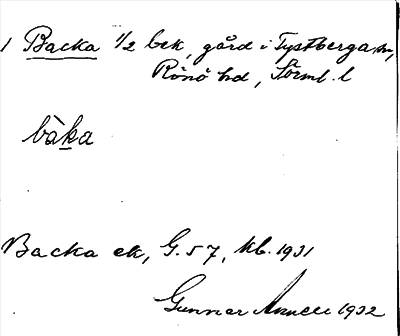 1 Backa 1/2 bek, gård i Tystberga sn,
Rönö hd, Sörml. l
bàka
Backa ek, G. 57, kb. 1931
Gunnar 1932